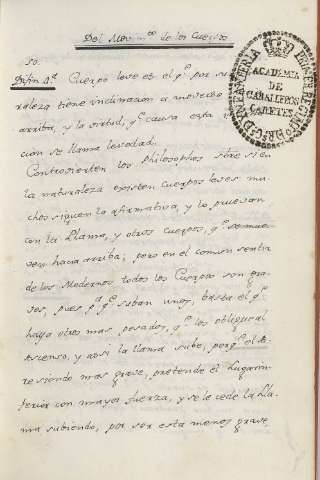 Del Movim.to de los Cuerpos
so.
Difin. 4.ª Cuerpo leve es el q.e por su
raleza tiene inclinacion a moverse
arriba, y la virtud, q.e causa esta
cion se llama levedad.
Controvierten los Philosophos sobre si en
la naturaleza existen cuerpos leves mu-
chos siguen la afirmativa, y lo pruevan
con la Llama, y otros cuerpos, q.e se mue-
ven hacia arriba; pero en el comun sentir
de los Modernos todos los Cuerpos son gra-
ves, pues p.a q.e suban unos, basta el q.e
haya otros mas pesados, q.e los obligue al
Ascenso, y assi la llama sube, porq.e el A-
re siendo mas grave, pretende el Lugar in-
ferior con mayor fuerza, y se le cede la Lla-
ma subiendo, por ser esta menos grave
ACADEMIA
DE
CABALLEROS
CADETES